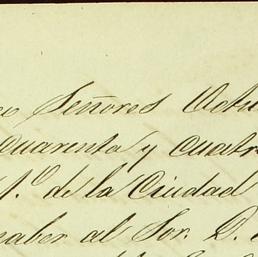 Señores
Quarenta y Cuatr
1.º de la Ciudad
saber al Sor. D.